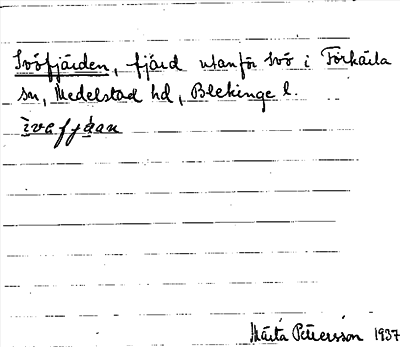 Ivöfjärden, fjärd utanför Ivö i Förkärla
sn, Medelstad hd, Blekinge l.
ìvafjàan
Märta Petersson 1937